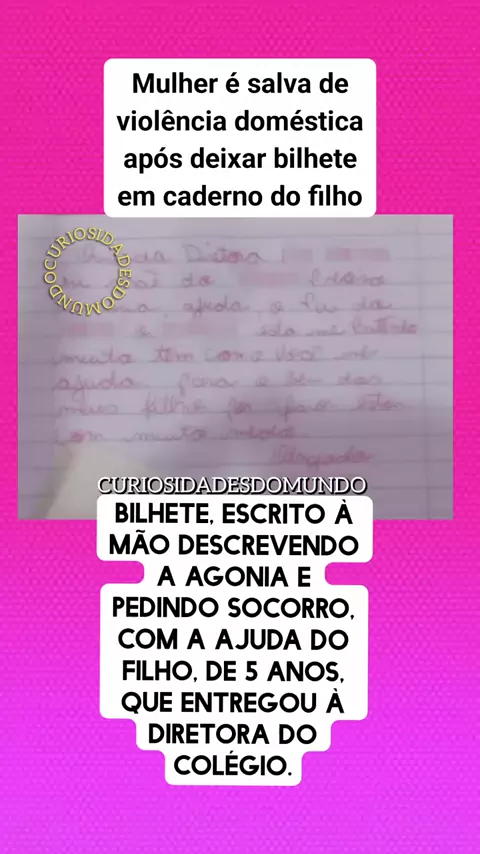 Mulher é salva de
violência doméstica
após deixar bilhete
em caderno do filho
CURIOSIDADESDOMUNDO
da Diretora
do
ajuda, o
muito tem como Você me
ajuda para o bem dos
meus filho por favor estou
com muito medo
Obrigada
CURIOSIDADESDOMUNDO
BILHETE, ESCRITO À
MÃO DESCREVENDO
A AGONIA E
PEDINDO SOCORRO,
COM A AJUDA DO
FILHO, DE 5 ANOS,
QUE ENTREGOU À
DIRETORA DO
COLÉGIO.